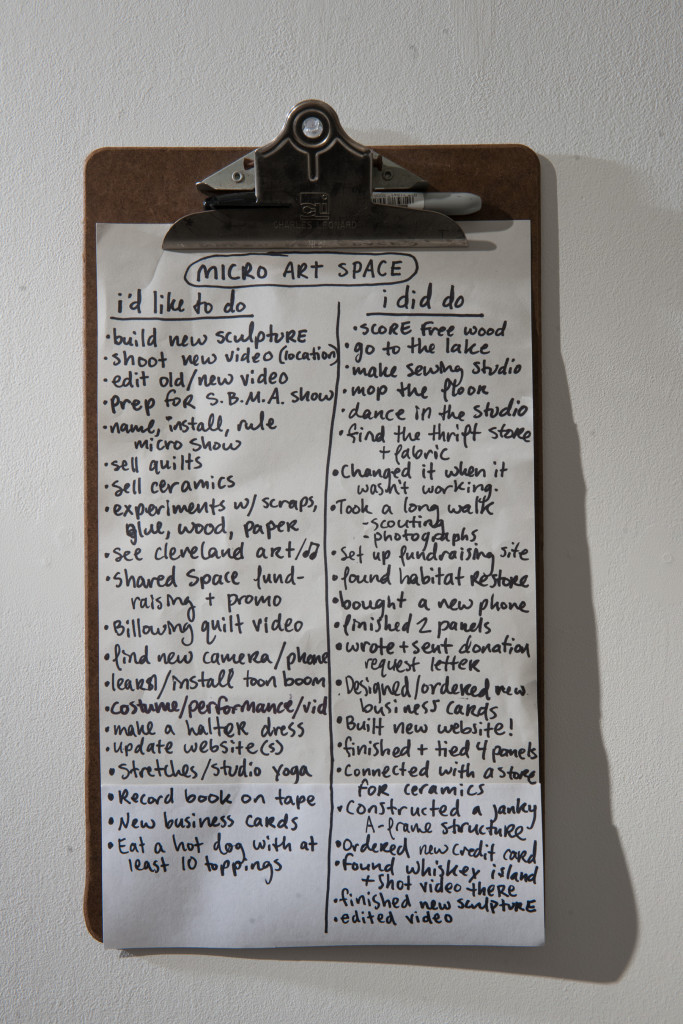 MICRO ART SPACE
i'd like to do
• build new sculpture
• shoot new video (location)
• edit old/new video
• prep for S.B.M.A. show
• name, install, rule
micro show
• sell quilts
• sell ceramics
• experiments w/ scraps,
glue, wood, paper
• see cleveland art/♫
• shared space fund-
raising + promo
• Billowing quilt video
• find new camera/phone
• learn/install toon boom
• costume/performance/vid
• make a halter dress
• update website(s)
• stretches/studio yoga
• Record book on tape
• New business cards
• Eat a hot dog with at
least 10 toppings
i did do
• SCORE free wood
• go to the lake
• make sewing studio
• mop the floor
• dance in the studio
• find the thrift store
+ fabric
• Changed it when it
wasn't working.
• Took a long walk
- scouting
- photographs
• set up fundraising site
• found habitat RESTORE
• bought a new phone
• finished 2 panels
• wrote + sent donation
request letter
• Designed/ordered new
business cards
• Built new website!
• finished + tied 4 panels
• Connected with a store
for ceramics
• Constructed a janky
A-frame structure
• Ordered new credit card
• found whiskey island
+ shot video there
• finished new sculpture
• edited video